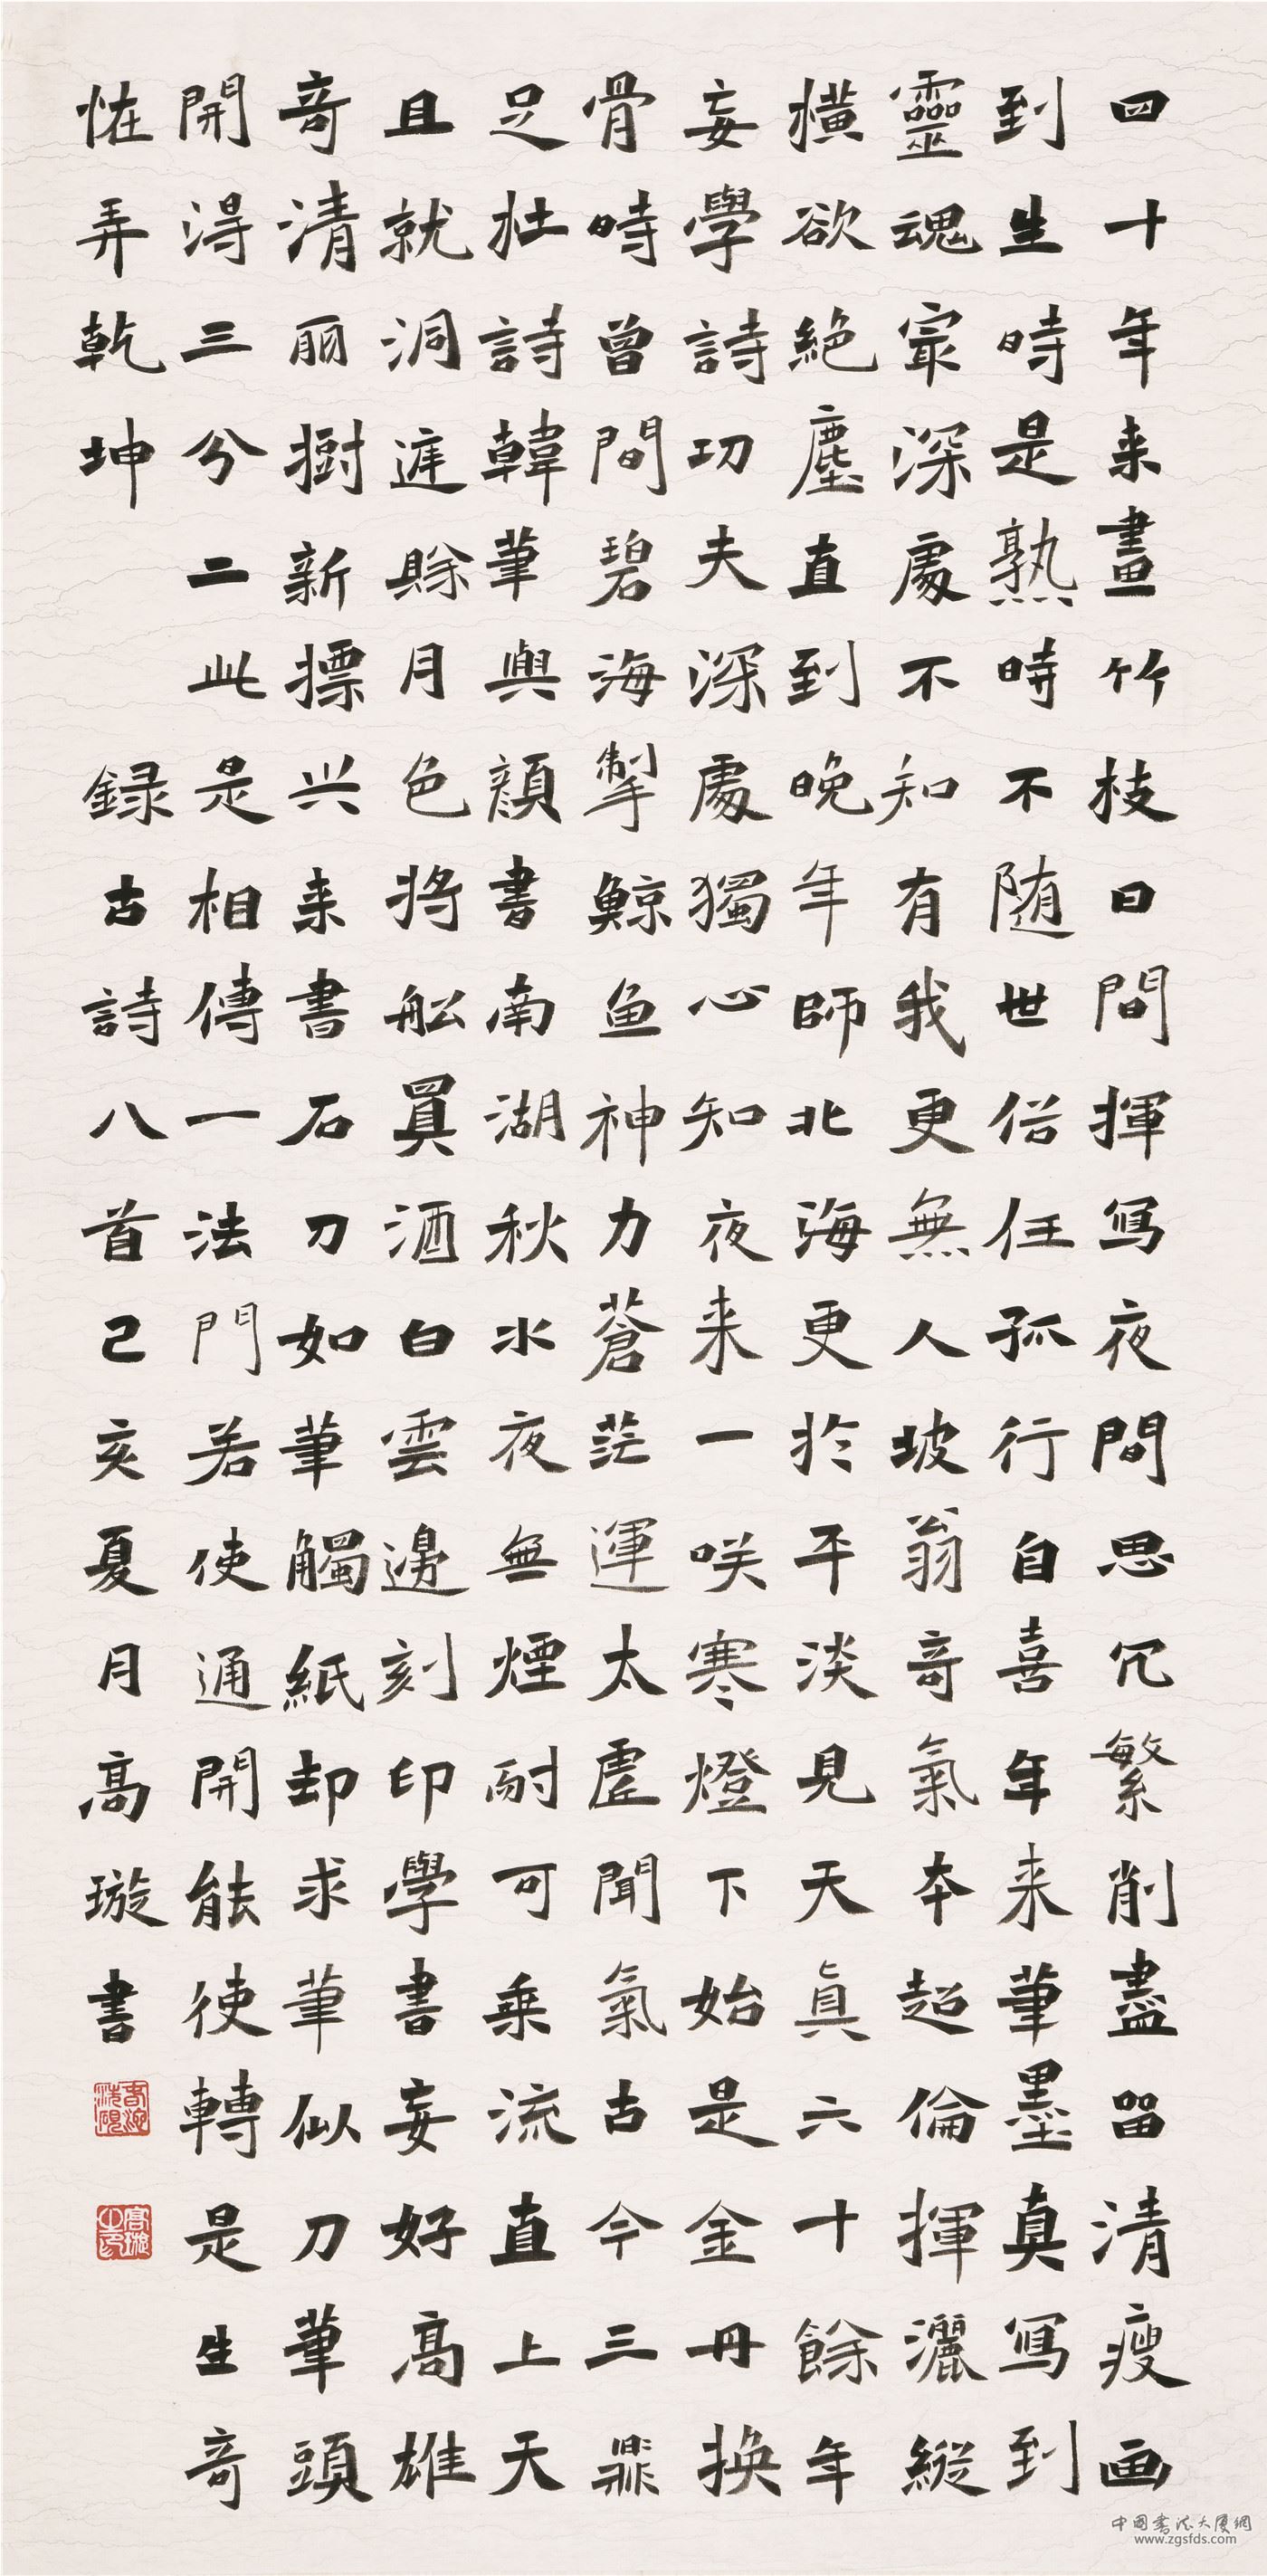 四十年来畫竹枝日間揮寫夜間思冗繁削盡留清瘦画
到生時是熟時不随世俗任孤行自喜年来筆墨真寫到
靈魂冣深處不知有我更無人坡翁奇氣本超倫揮灑縱
橫欲絶塵直到晚年師北海更於平淡見天真六十餘年
妄學詩功夫深處獨心知夜来一咲寒燈下始是金丹換
骨時曾間碧海掣鯨鱼神力蒼茫運太虛聞氣古今三鼎
足杜詩韓筆與顏書南湖秋水夜無煙耐可乗流直上天
且就洞庭賖月色將舩買酒白雲邊刻印學書妄好高雄
奇清丽樹新摽兴来書石刀如筆觸紙却求筆似刀筆頭
開淂三分二此是相傳一法門若使通開能使轉是生奇
恠弄乾坤 録古詩八首己亥夏月高璇書
高璇之印
中国書法大厦網
www.zgsfds.com